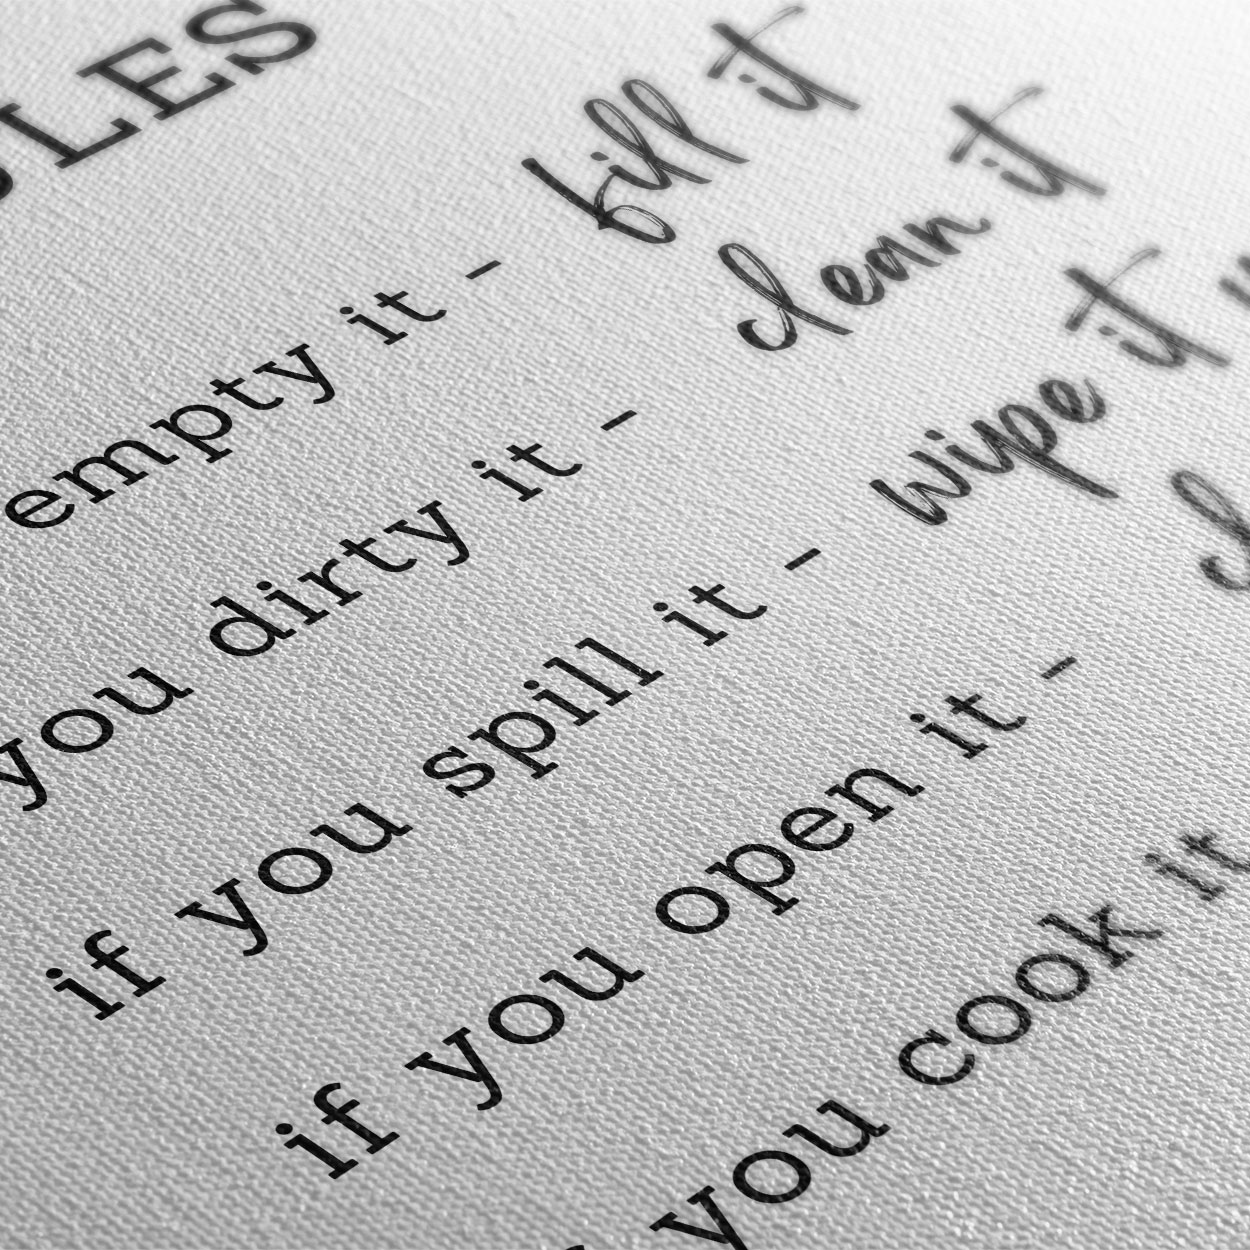 ULES
empty it - fill it
you dirty it - clean it
if you spill it - wipe it
if you open it -
you cook it